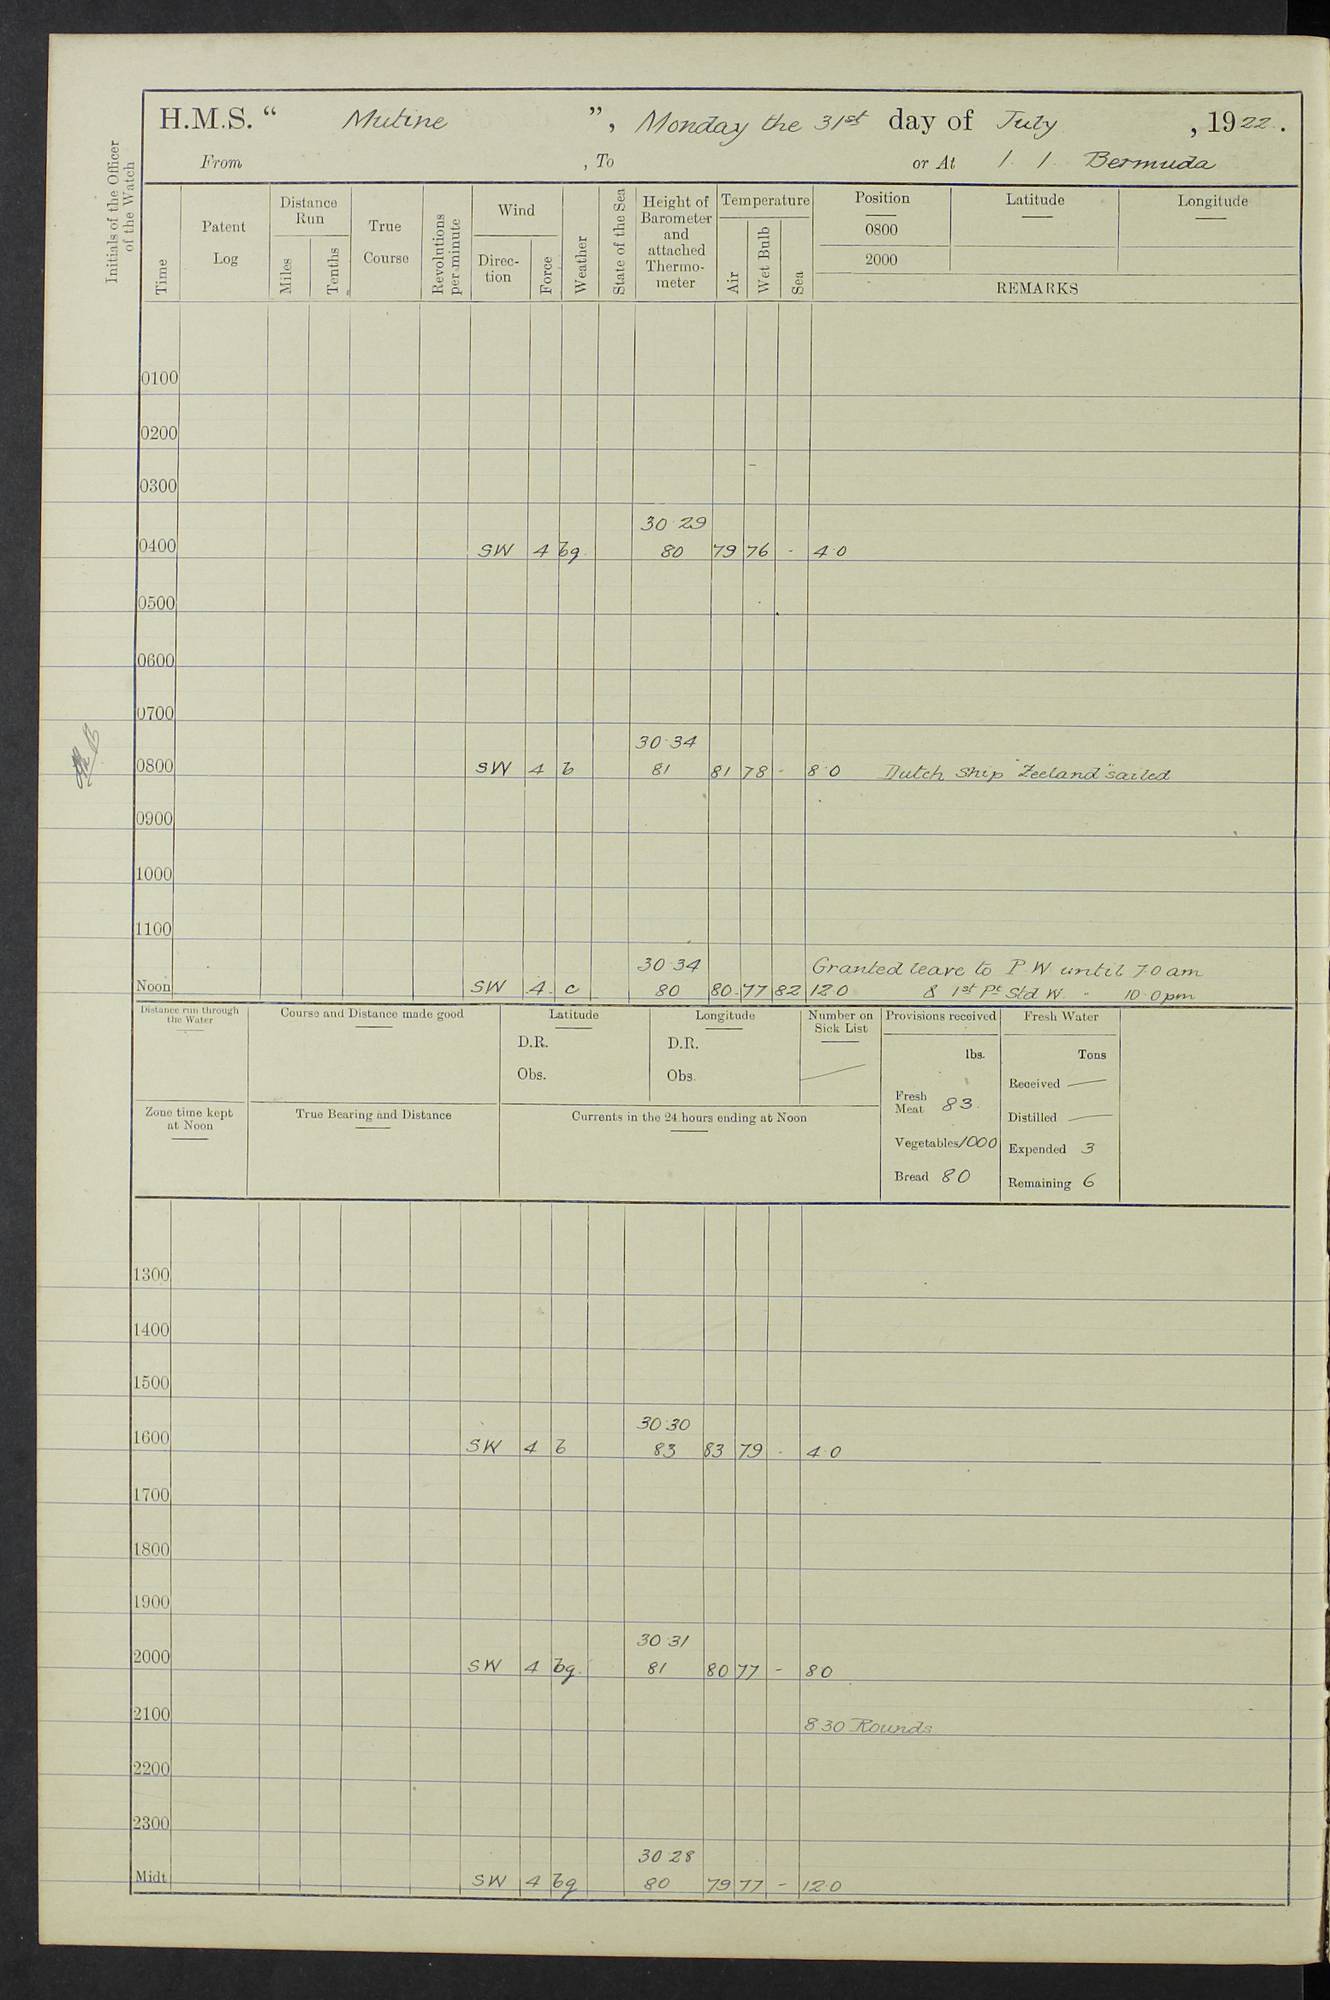 H.M.S. “ Mutine ”, Monday the 31st day of July , 1922.
From , To or At 1. 1. Bermuda
Initials of the Officer of the Watch
Time
Patent Log
Distance Run
Miles
Tenths
True Course
Revolutions per minute
Wind
Direc- tion
Force
Weather
State of the Sea
Height of Barometer and attached Thermo- meter
Temperature
Air
Wet Bulb
Sea
Position
0800
2000
Latitude
Longitude
REMARKS
0100
0200
0300
30·29
0400 SW 4 bq 80 79 76 - 4·0
0500
0600
0700
30·34
0800 SW 4 b 81 81 78 - 8·0 Dutch Ship "Zeeland" sailed
0900
1000
1100
30·34 Granted leave to P W until 7·0 am
Noon SW 4 c 80 80 77 82 12·0 & 1st Pt Std W. " 10·0 pm
Distance run through the Water
Course and Distance made good
Latitude
D.R.
Obs.
Longitude
D.R.
Obs.
Number on Sick List
Provisions received
lbs.
Fresh Meat 83
Vegetables 1000
Bread 80
Fresh Water
Tons
Received —
Distilled —
Expended 3
Remaining 6
Zone time kept at Noon
True Bearing and Distance
Currents in the 24 hours ending at Noon
1300
1400
1500
30·30
1600 SW 4 b 83 83 79 - 4·0
1700
1800
1900
30·31
2000 SW 4 bq 81 80 77 - 80
2100 8·30 Rounds
2200
2300
30·28
Midt SW 4 bq 80 79 77 - 12·0